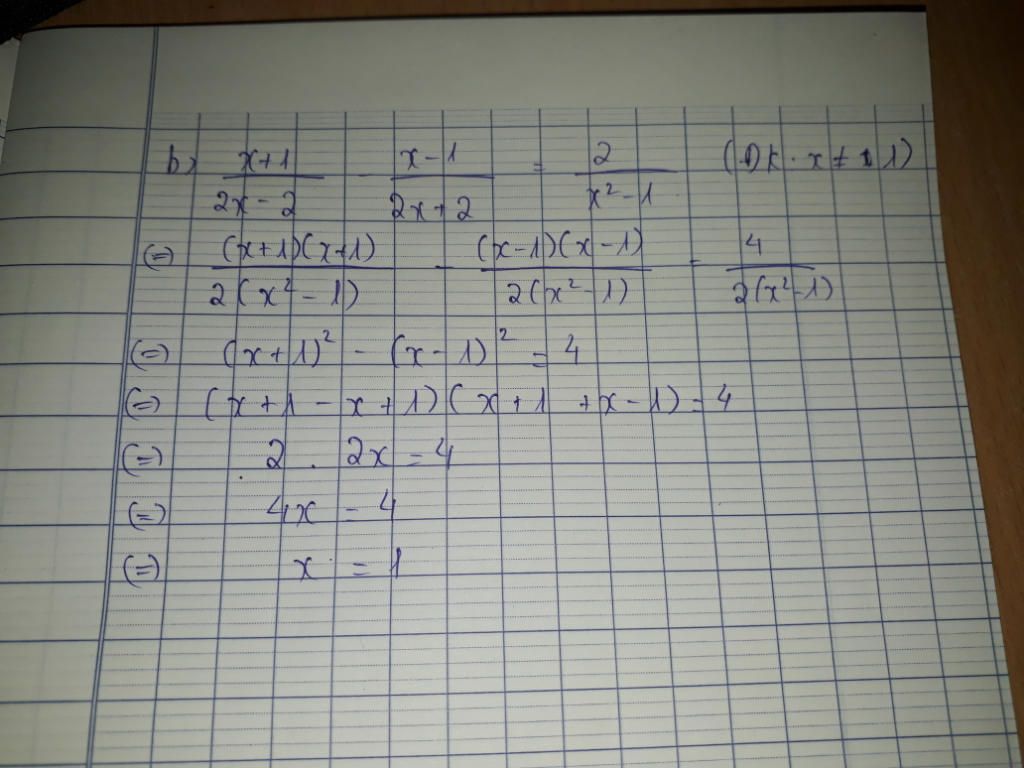 b) (x+1)/(2x-2) - (x-1)/(2x+2) = 2/(x²-1) (ĐK: x ≠ ±1)
(=) (x+1)(x+1)/2(x²-1) - (x-1)(x-1)/2(x²-1) = 4/2(x²-1)
(=) (x+1)² - (x-1)² = 4
(=) (x+1-x+1)(x+1+x-1) = 4
(=) 2 . 2x = 4
(=) 4x = 4
(=) x = 1